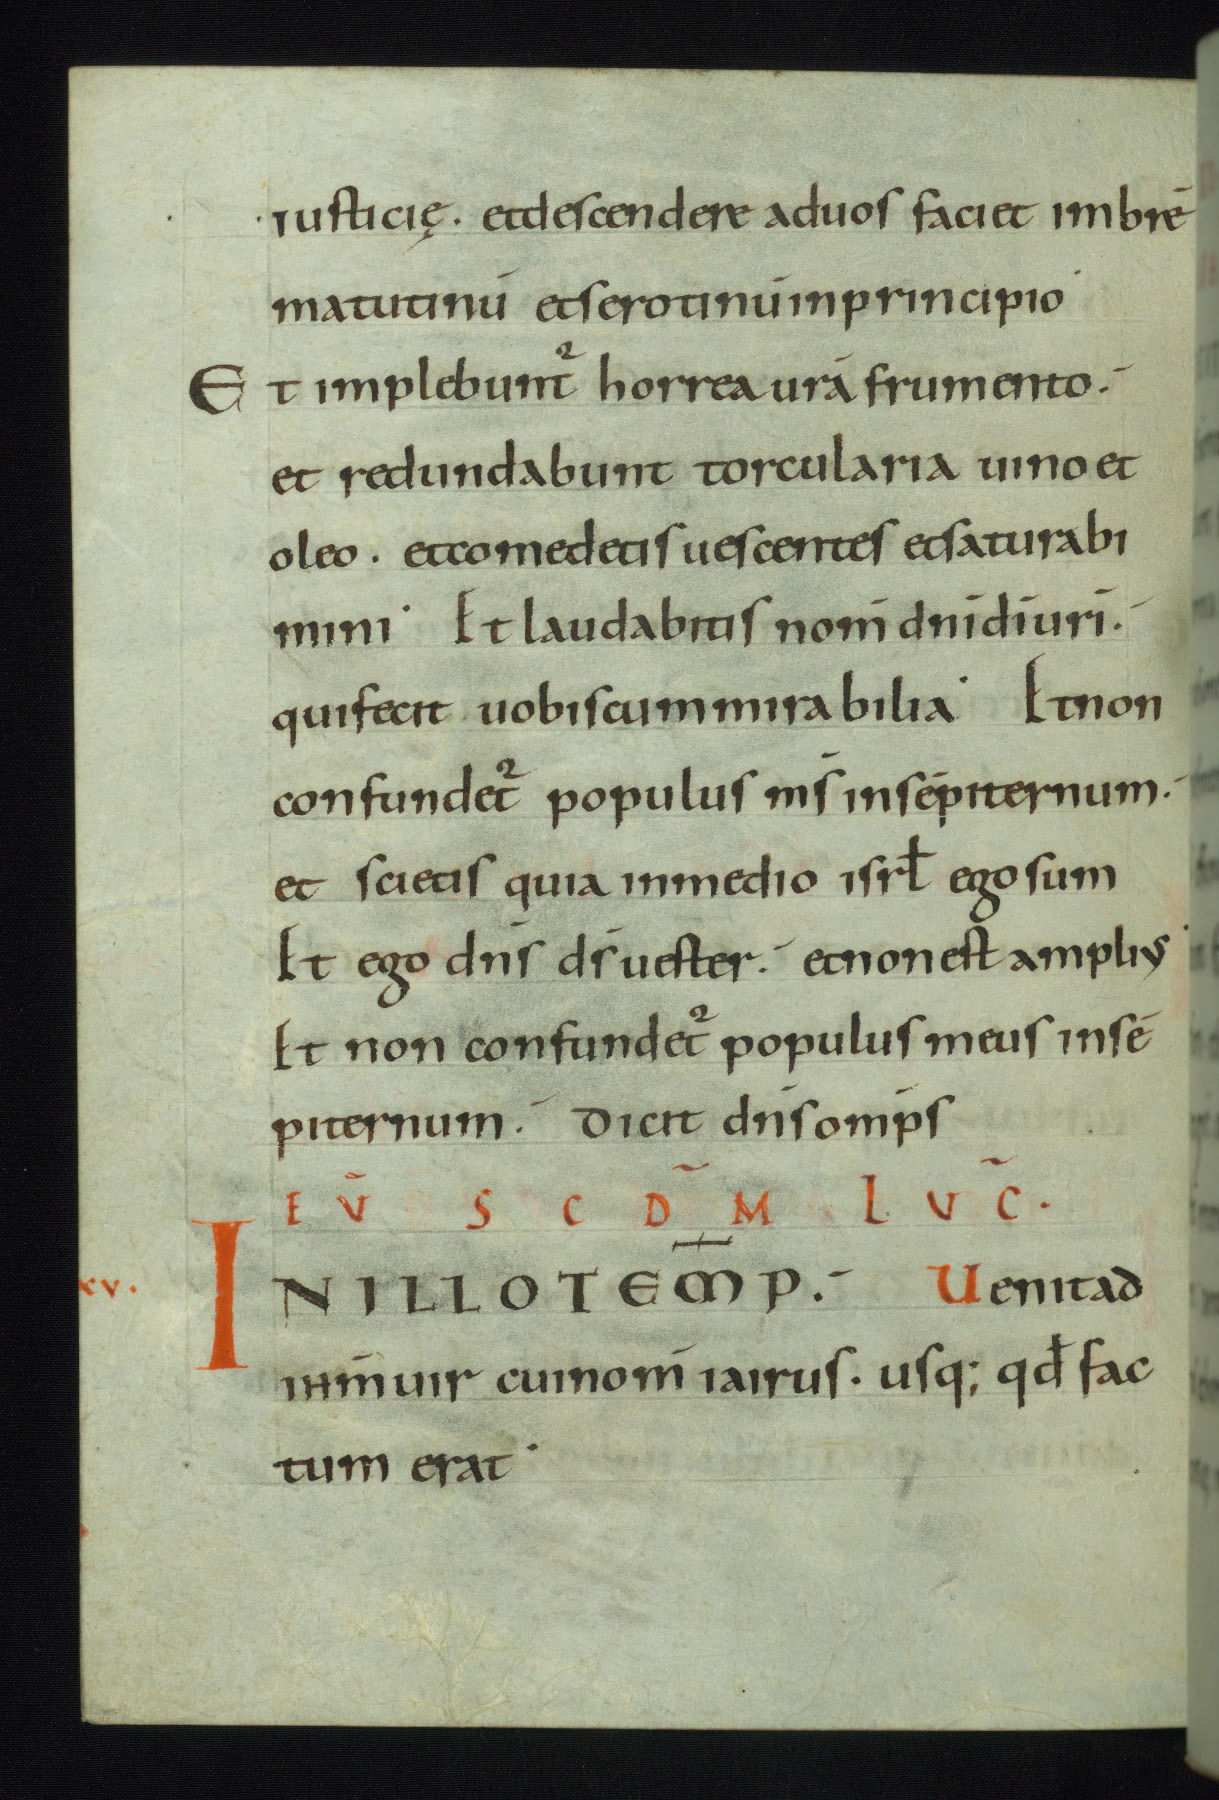 iusticię. et descendere ad uos faciet imbrē
matutinū et serotinū in principio
Et implebunt᷑ horrea urā frumento.
et redundabunt torcularia uino et
oleo. et comedetis uescentes et saturabi
mini Et laudabitis nom̄ dn̄i dī urī.
qui fecit uobiscum mirabilia Et non
confundet᷑ populus ms̄ in sēpiternum.
et scietis quia in medio isrl̄ ego sum
Et ego dn̄s ds̄ uester. et non est amplius
Et non confundet᷑ populus meus in sē
piternum. Dicit dn̄s omp̄s
EV̄ SCDM̄ LVC̄.
xv. IN ILLO TEMP̄. Uenit ad
ihm̄ uir cui nom̄ iairus. usq; qd̄ fac
tum erat